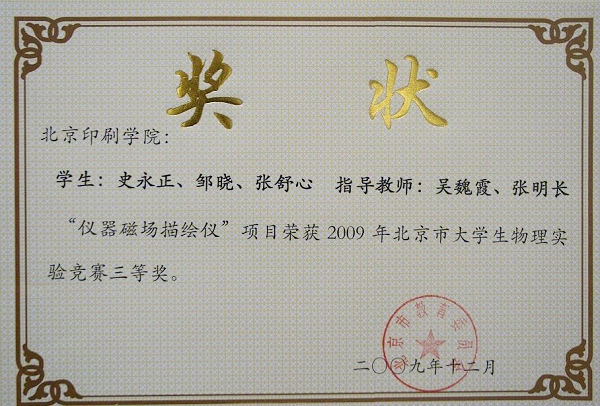 奖状
北京印刷学院：
学生：史永正、邹晓、张舒心 指导教师：吴魏霞、张明长
“仪器磁场描绘仪”项目荣获2009年北京市大学生物理实
验竞赛三等奖。
北京市教育委员会
二〇〇九年十二月